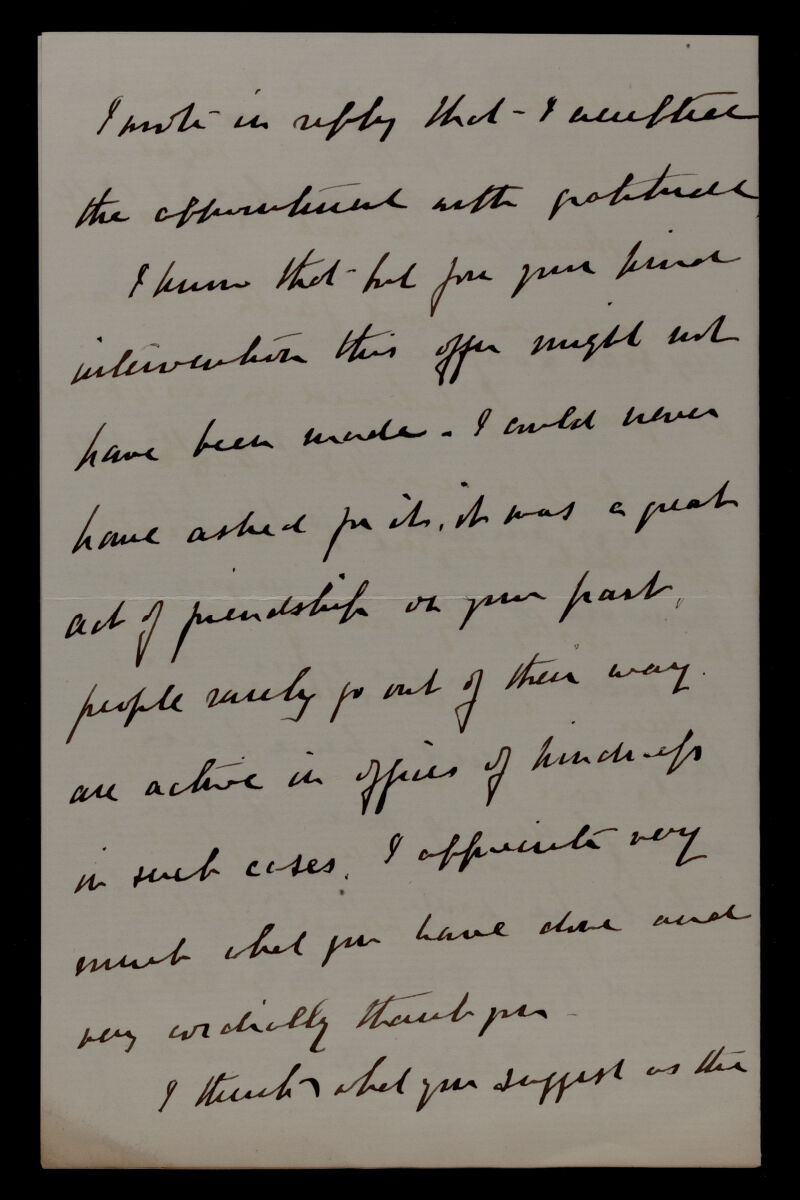 I wrote in reply that - I accepted
the appointment with gratitude
I know that - but for your kind
intervention this offer might not
have been made - I could never
have asked for it, it was a great
act of friendship on your part,
people rarely go out of their way.
are active in offices of kindness
in such cases. I appreciate very
much what you have done and
very cordially thank you -
I think what you suggest as the